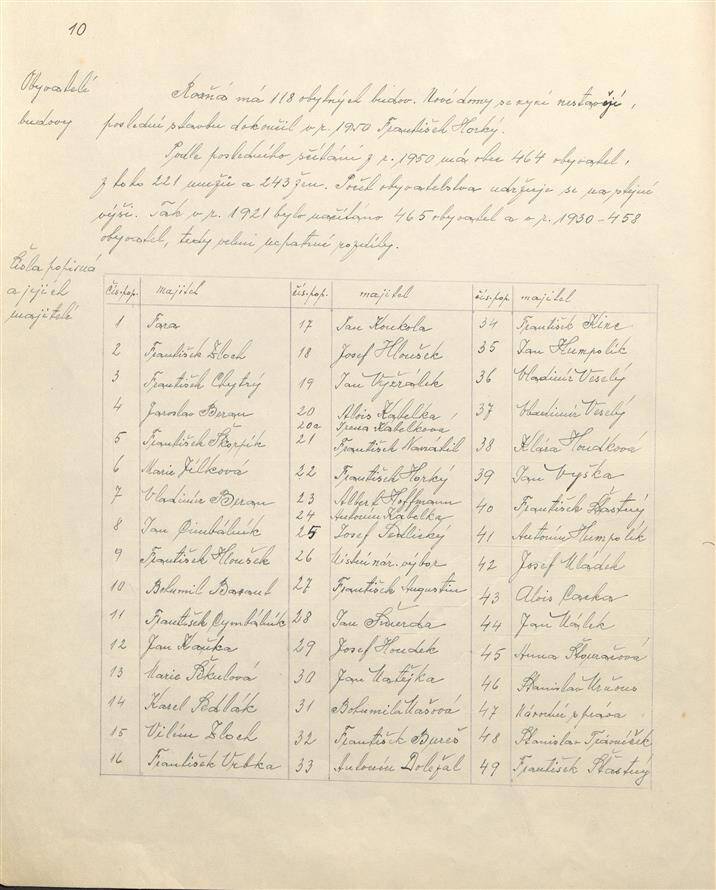 10
Obyvatelé
budovy
Rosná má 118 obytných budov. Nové domy se nyní nestavějí,
poslední stavbu dokončil v r. 1950 František Horký.
Podle posledního sčítání z r. 1950 má obec 464 obyvatel,
z toho 221 mužů a 243 žen. Počet obyvatelstva udržuje se na stejné
výši. Tak v r. 1921 bylo načítáno 465 obyvatel a v r. 1930 - 458
obyvatel, tedy velmi nepatrné rozdíly.
Čísla popisná
a jejich
majitelé
čís. pop. majitel čís. pop. majitel čís. pop. majitel
1 Fara 17 Jan Koukola 34 František Klinc
2 František Zloch 18 Josef Hloušek 35 Jan Humpolík
3 František Chytrý 19 Jan Vyzrálek 36 Vladimír Veselý
4 Jaroslav Beran 20 Alois Kabelka 37 Vladimír Veselý
20a Irena Kabelková
5 František Škorpík 21 František Navrátil 38 Klára Houdková
6 Marie Jílková 22 František Horký 39 Jan Vyška
7 Vladimír Beran 23 Albert Hoffmann 40 František Šťastný
24 Antonín Kabelka
8 Jan Cimbálník 25 Josef Sedlický 41 Antonín Humpolík
9 František Hloušek 26 Místní nár. výbor 42 Josef Mládek
10 Bohumil 27 František Augustin 43 Alois
11 František Cymbálník 28 Jan Šmerda 44 Jan Málek
12 Jan Kaňka 29 Josef Houdek 45 Anna
13 Marie Pekulová 30 Jan Matějka 46 Stanislav
14 Karel Sedlák 31 Bohumila Mašová 47 Národní správa
15 Vilém Zloch 32 František Bureš 48 Stanislav Trávníček
16 František Vrbka 33 Antonín Doležal 49 František Šťastný